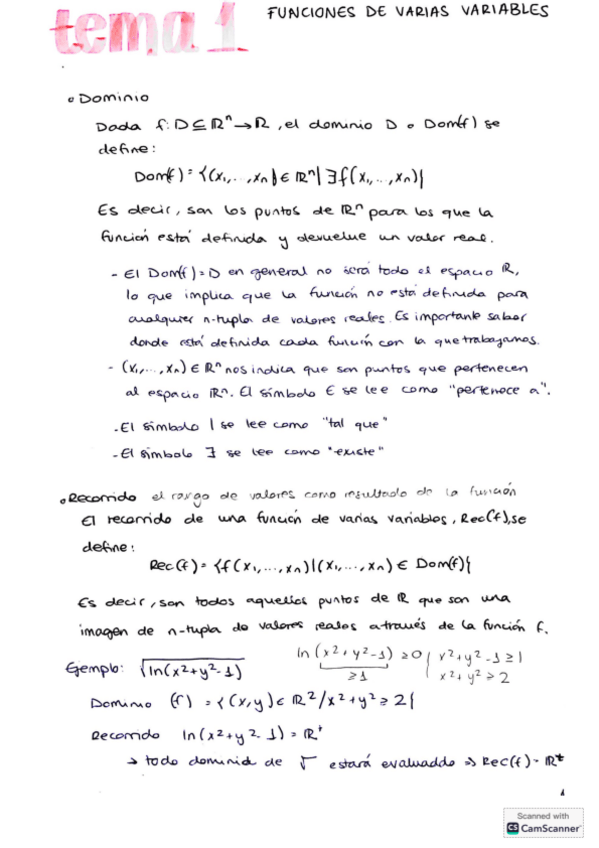 tema 1
FUNCIONES DE VARIAS VARIABLES
Dominio
Dada f: D ⊆ ℝⁿ → ℝ, el dominio D o Dom(f) se
define:
Dom(f) = {(x₁, ..., xₙ) ∈ ℝⁿ | ∃ f(x₁, ..., xₙ)}
Es decir, son los puntos de ℝⁿ para los que la
función está definida y devuelve un valor real.
- El Dom(f) = D en general no será todo el espacio ℝ,
lo que implica que la función no está definida para
cualquier n-tupla de valores reales. Es importante saber
donde está definida cada función con la que trabajamos.
- (x₁, ..., xₙ) ∈ ℝⁿ nos indica que son puntos que pertenecen
al espacio ℝⁿ. El símbolo ∈ se lee como "pertenece a".
- El símbolo | se lee como "tal que"
- El símbolo ∃ se lee como "existe"
Recorrido el rango de valores como resultado de la función
El recorrido de una función de varias variables, Rec(f), se
define:
Rec(f) = {f(x₁, ..., xₙ) | (x₁, ..., xₙ) ∈ Dom(f)}
Es decir, son todos aquellos puntos de ℝ que son una
imagen de n-tupla de valores reales através de la función f.
Ejemplo: √ln(x²+y²-1) ln(x²+y²-1) ≥ 0 { x²+y²-1 ≥ 1
≥1 x²+y² ≥ 2
Dominio (f) = {(x,y) ∈ ℝ² / x²+y² ≥ 2}
Recorrido ln(x²+y²-1) = ℝ⁺
→ todo dominio de √ estará evaluaddo ⇒ Rec(f) = ℝ⁺
1
Scanned with
CS CamScanner